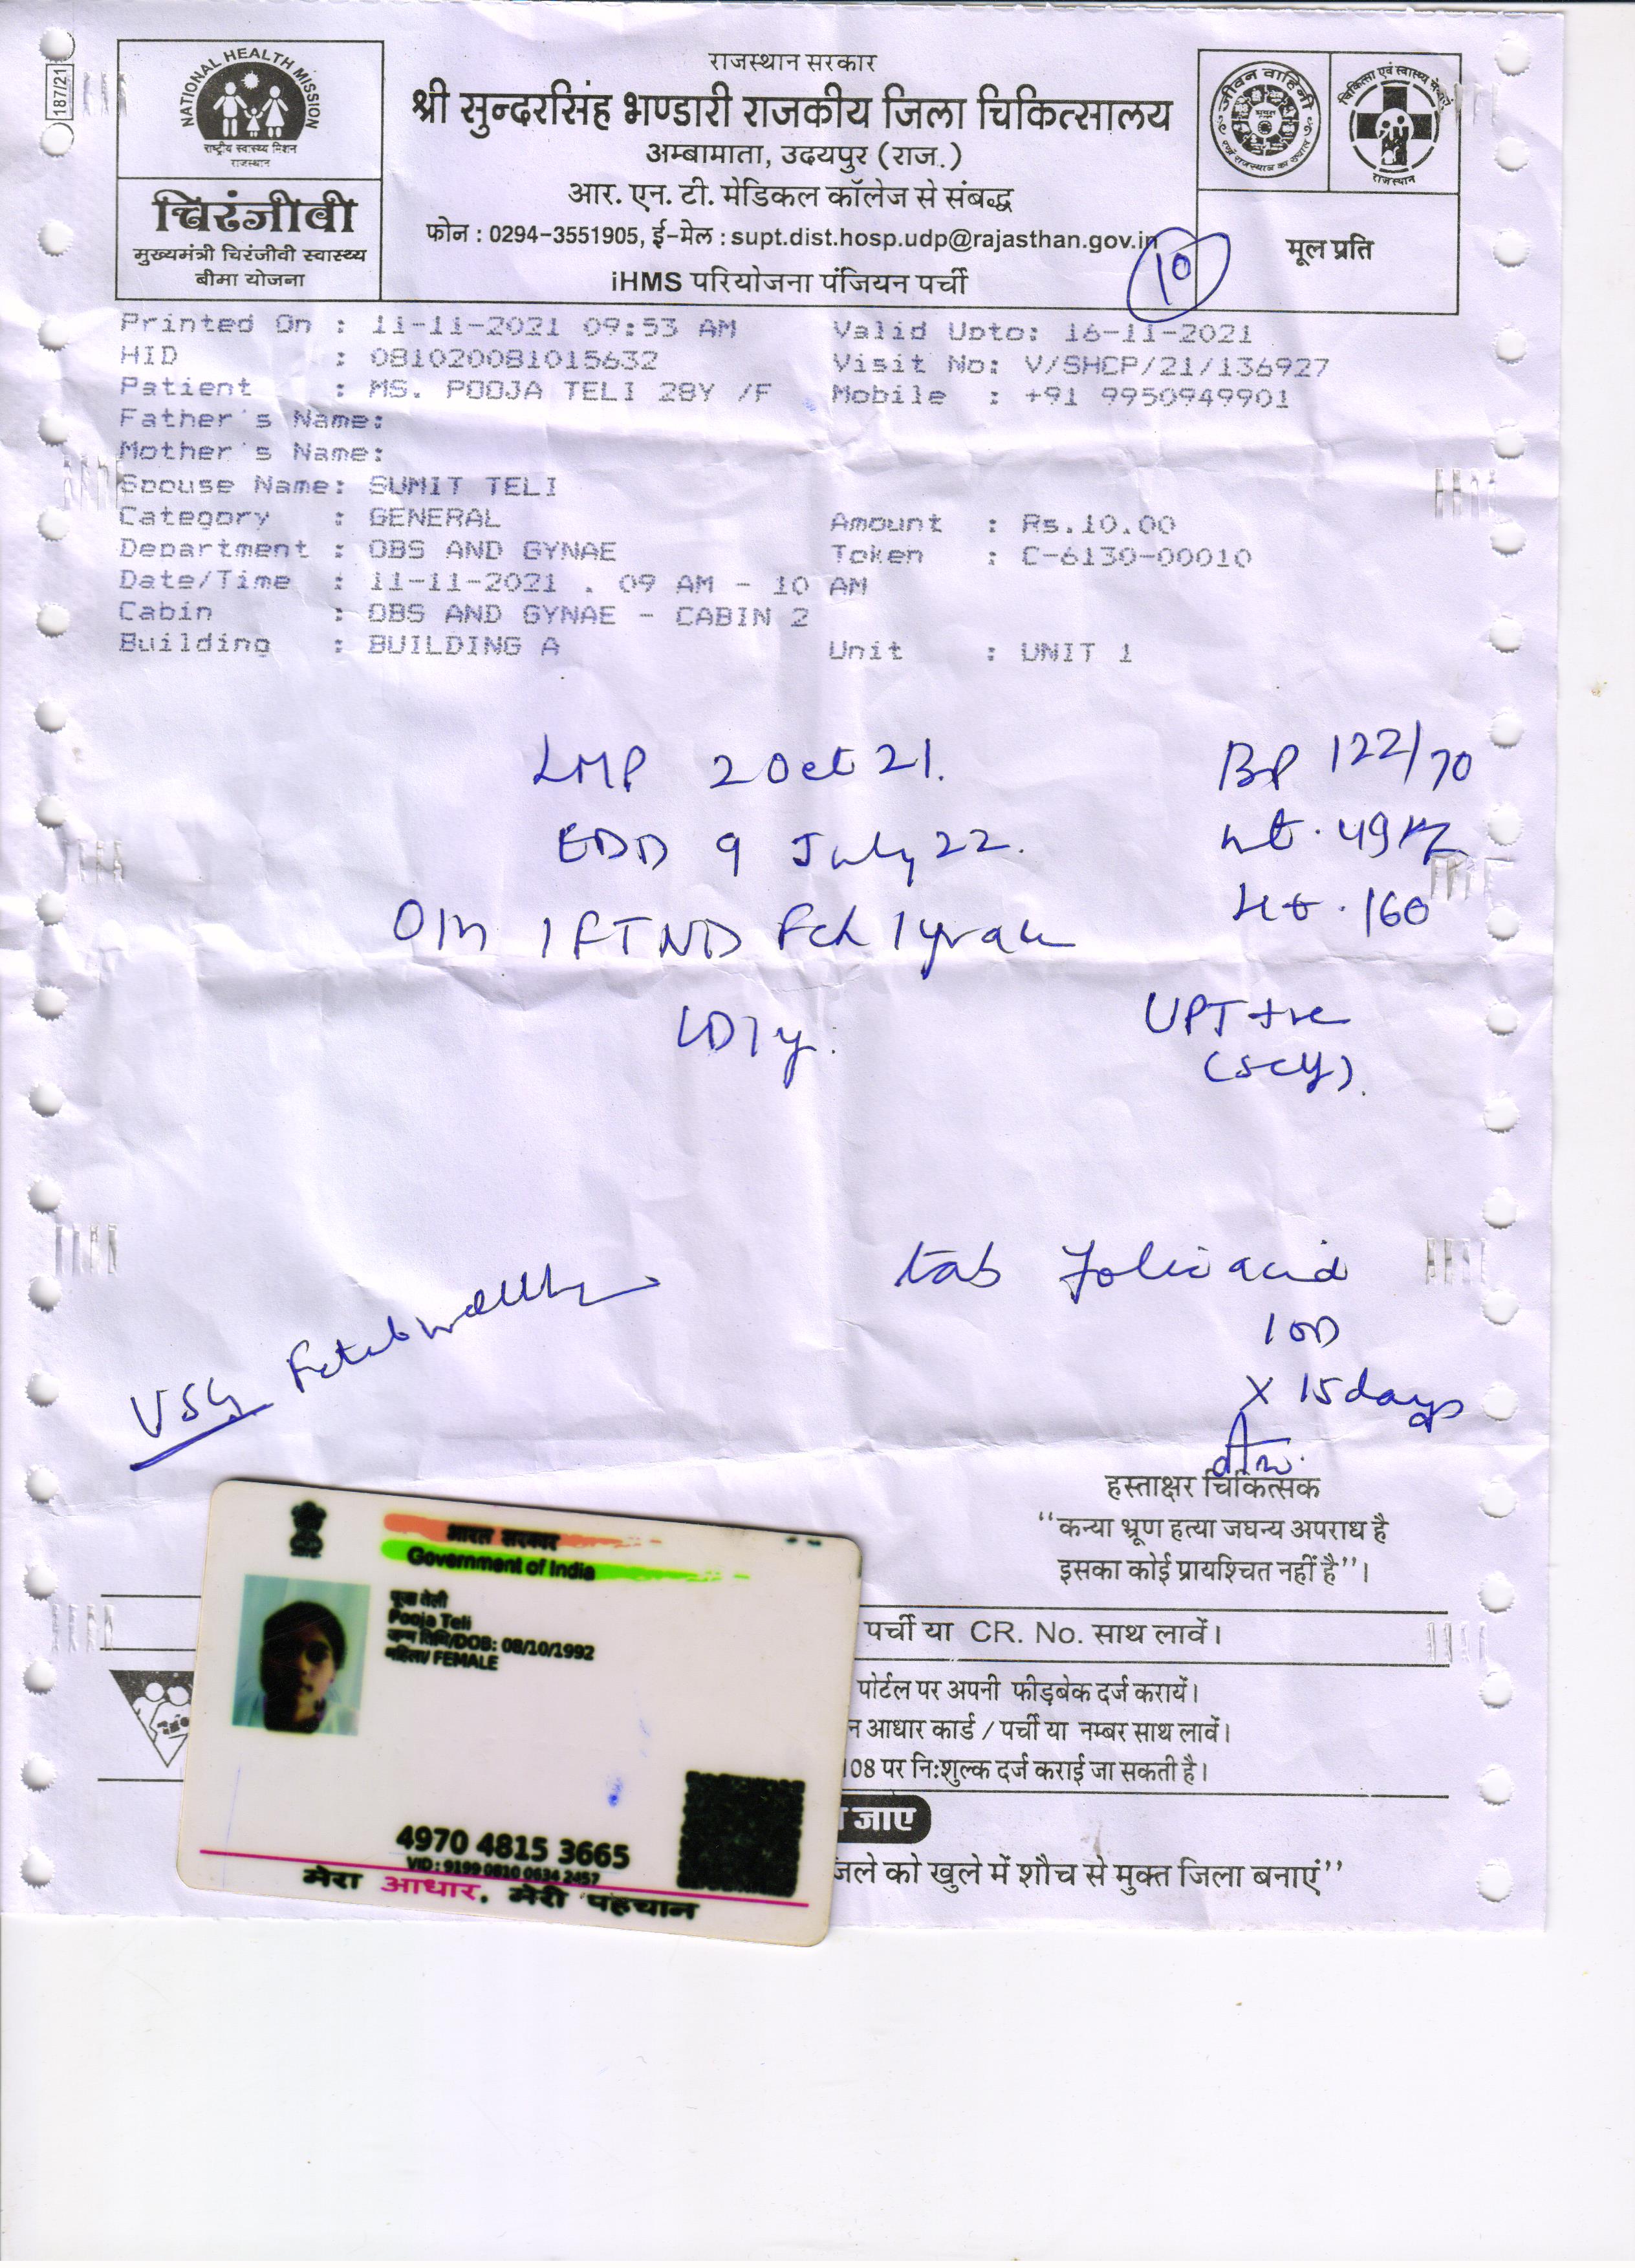 187/21
NATIONAL HEALTH MISSION
राष्ट्रीय स्वास्थ्य मिशन
राजस्थान
चिरंजीवी
मुख्यमंत्री चिरंजीवी स्वास्थ्य
बीमा योजना
राजस्थान सरकार
श्री सुन्दरसिंह भण्डारी राजकीय जिला चिकित्सालय
अम्बामाता, उदयपुर (राज.)
आर. एन. टी. मेडिकल कॉलेज से संबद्ध
फोन : 0294-3551905, ई-मेल : supt.dist.hosp.udp@rajasthan.gov.in
iHMS परियोजना पंजियन पर्ची
10
जीवन वाहिनी
चिकित्सा एवं स्वास्थ्य
राजस्थान
मूल प्रति
Printed On : 11-11-2021 09:53 AM Valid Upto: 16-11-2021
HID : 081020081015632 Visit No: V/SHCP/21/136927
Patient : MS. POOJA TELI 28Y /F Mobile : +91 9950949901
Father's Name:
Mother's Name:
Spouse Name: SUMIT TELI
Category : GENERAL Amount : Rs.10.00
Department : OBS AND GYNAE Token : C-6130-00010
Date/Time : 11-11-2021 . 09 AM - 10 AM
Cabin : OBS AND GYNAE - CABIN 2
Building : BUILDING A Unit : UNIT 1
LMP 2 Oct 21. BP 122/70
EDD 9 July 22. wt. 49 kg
O/H 1 FTND Fch 1 yr Ht. 160
LD 1y. UPT +ve
tab folic acid
1 OD
x 15 days
USG Fetal wellbeing
हस्ताक्षर चिकित्सक
“कन्या भ्रूण हत्या जघन्य अपराध है
इसका कोई प्रायश्चित नहीं है”।
पर्ची या CR. No. साथ लावें।
पोर्टल पर अपनी फीड़बेक दर्ज करायें।
न आधार कार्ड / पर्ची या नम्बर साथ लावें।
108 पर निःशुल्क दर्ज कराई जा सकती है।
जाए
जिले को खुले में शौच से मुक्त जिला बनाएं”
भारत सरकार
Government of India
पूजा तेली
Pooja Teli
जन्म तिथि/DOB: 08/10/1992
महिला/ FEMALE
4970 4815 3665
VID : 9199 0810 0634 2457
मेरा आधार, मेरी पहचान